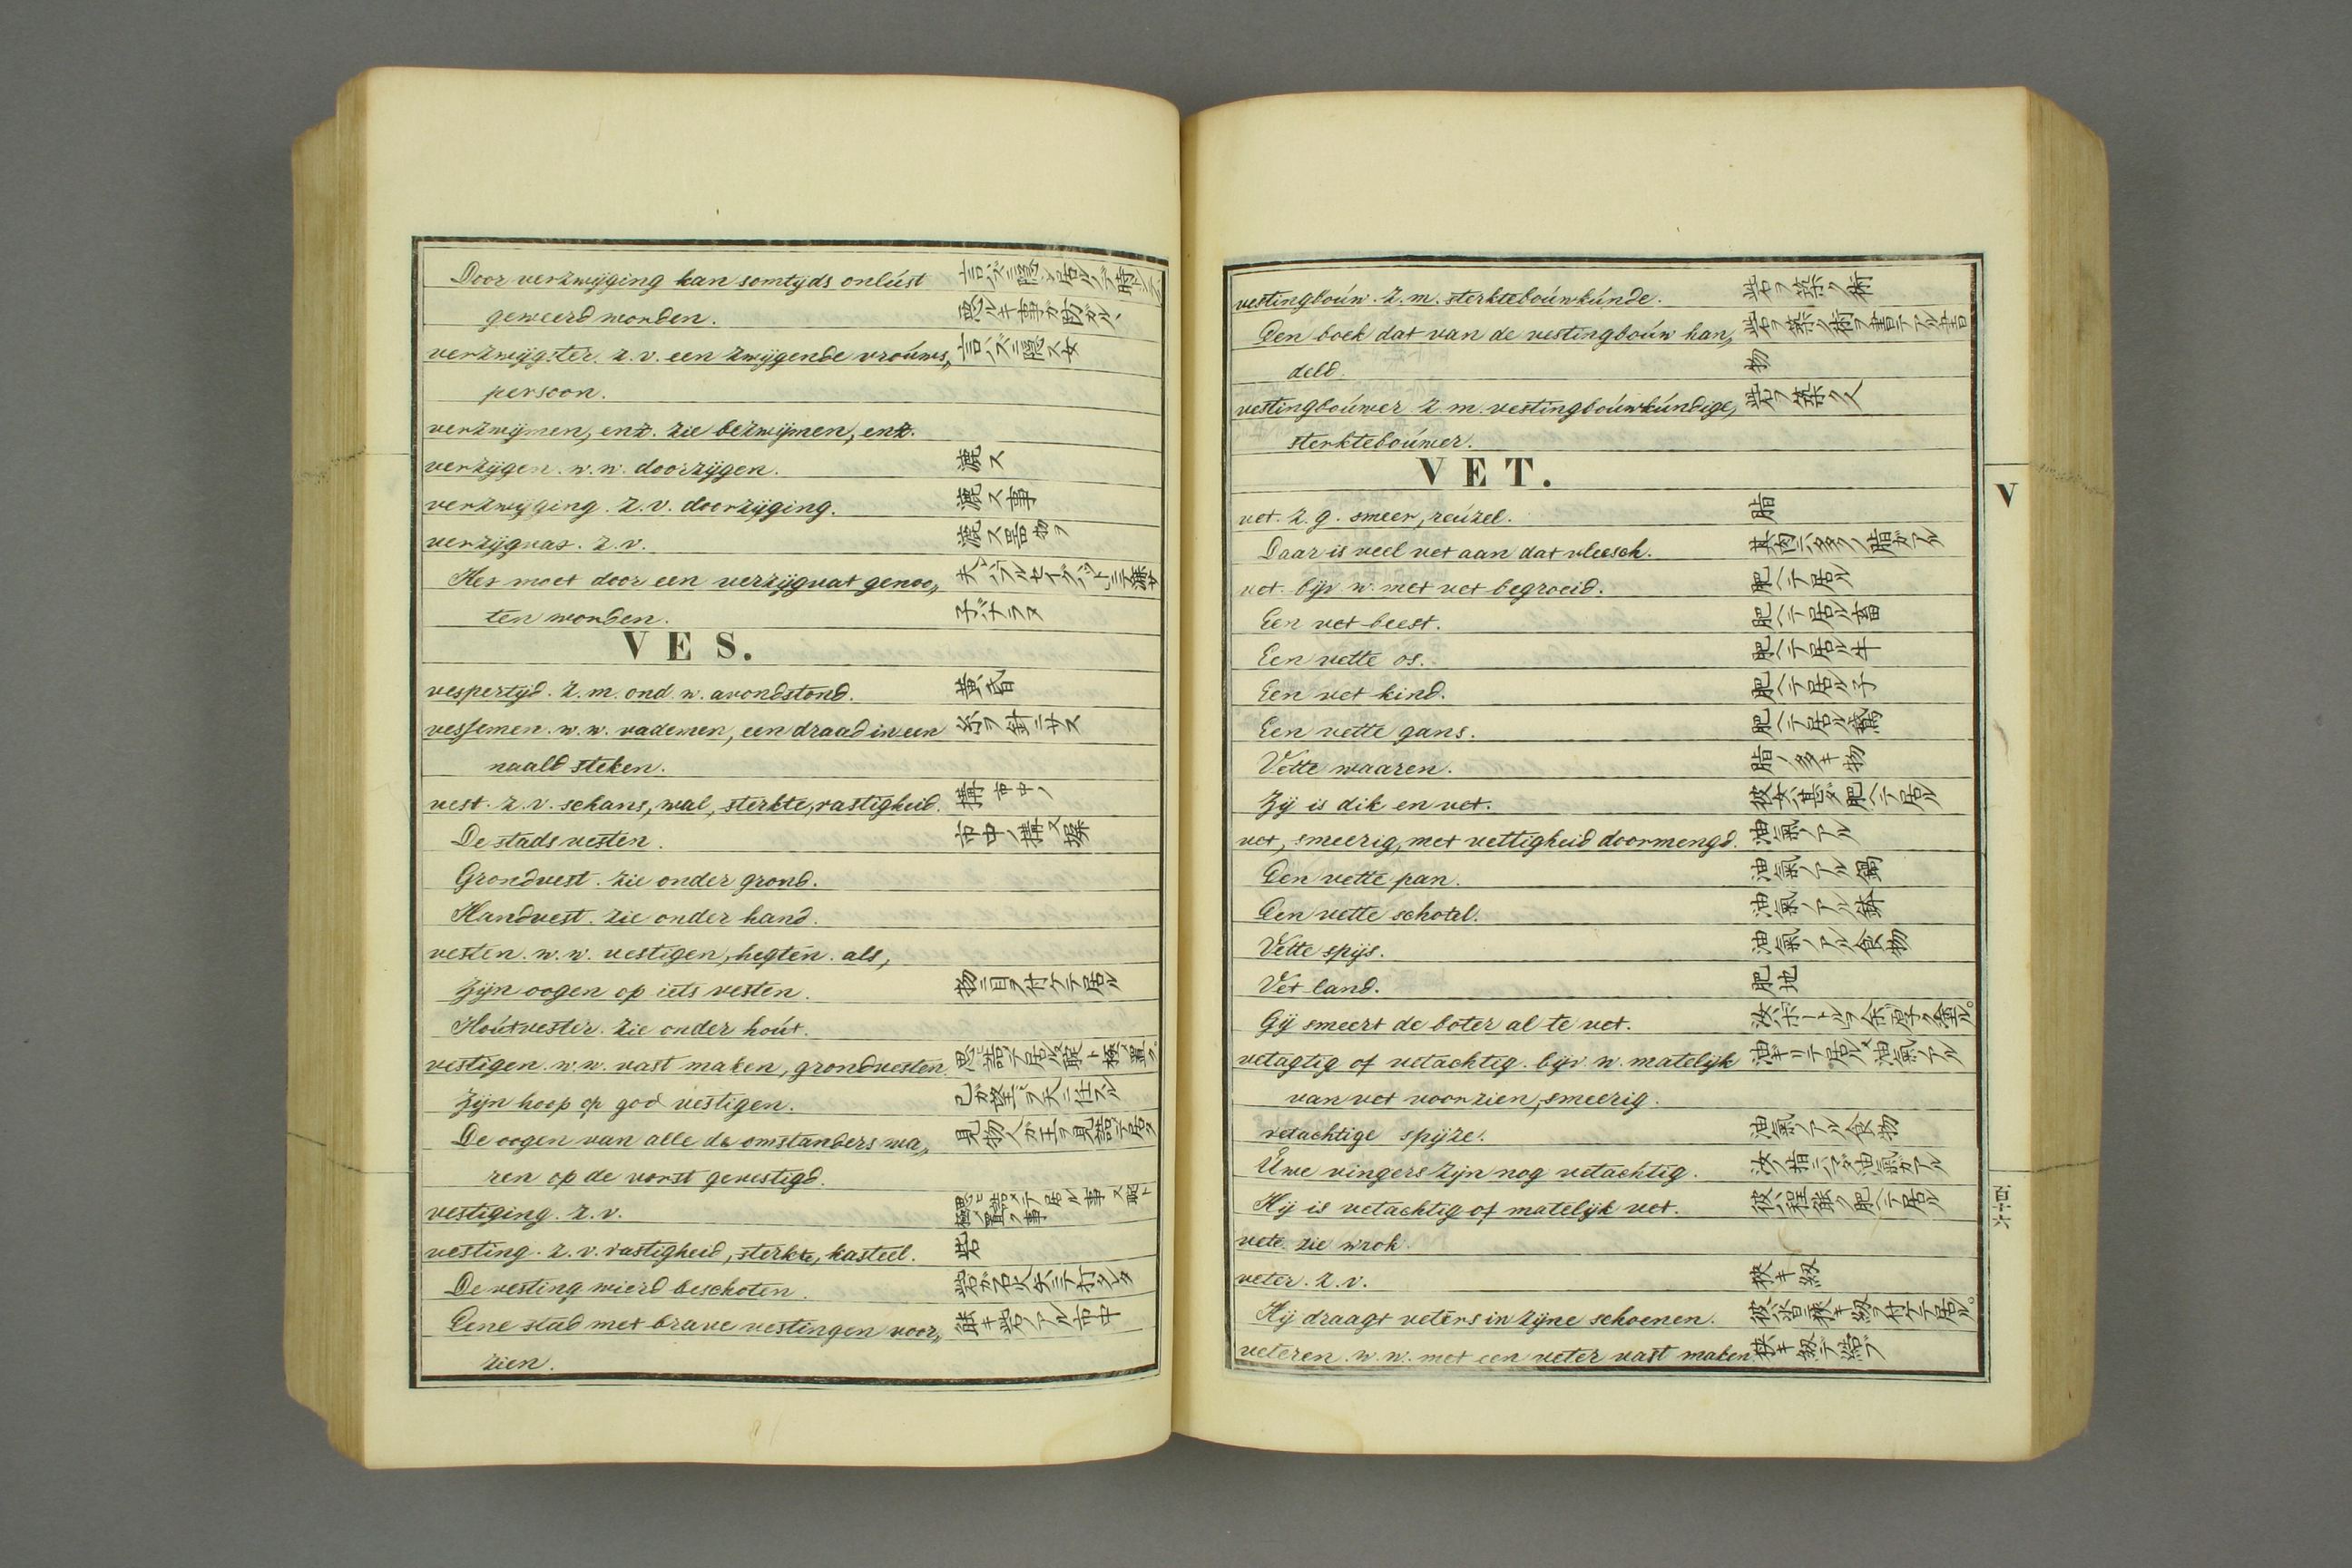 Door verzwijging kan somtijds onlúst 言ハズニ隠シ居ルデ時トシテ
geweerd worden. 悪ルキ事ガ防ガル、
verzwijgster. z.v. een zwijgende vroúws„ 言ハズニ隠ス女
persoon.
verzwijmen, enz. zie bezwijmen, enz.
verzijgen. w.w. doorzijgen. 漉ス
verzwijging. z.v. doorzijging. 漉ス事
verzijgvas. z.v. 漉ス器物
Het moet door een verzijgvat genoo„
ten worden. 子バナラヌ
VES.
vespertijd. z.m. ond. w. avondstond. 黄昏
vessemen. w.w. vademen, een draad in een 糸ヲ針ニサス
naald steken.
vest. z.v. schans, wal, sterkte, vastigheid. 市中ノ構
De stads vesten. 市中ノ構又堀
Grondvest. zie onder grond.
Handvest. zie onder hand.
vesten. w.w. vestigen, hegten. als,
Zijn oogen op iets vesten. 物ニ目ヲ付ケテ居ル
Hoútvester. zie onder hoút.
vestigen. w.w. vast maken, grondvesten.
Zijn hoop op god vestigen. 己ガ望ヲ天ニ任スル
De oogen van alle de omstanders wa„ 見物人ガ王ヲ見詰テ居タ
ren op de vorst gevestigd.
vestiging. z.v.
vesting. z.v. vastigheid, sterkte, kasteel. 岩
De vesting wierd beschoten. 岩ガ石火矢ニテ打レタ
Eene stad met brave vestingen voor„ 能キ岩ノアル市中
zien.
vestingboúw. z.m. sterkteboúwkúnde. 岩ヲ築ク術
Een boek dat van de vestingboúw han„ 岩ヲ築ク術ヲ書テアル書
deld. 物
vestingboúwer. z.m. vestingboúwkúndige, 岩ヲ築ク人
sterkteboúwer.
VET.
vet. z.g. smeer, reúzel. 脂
Daar is veel vet aan dat vleesch. 其肉ニ多ク脂ガアル
vet. bijv. w. met vet begroeid. 肥ヘテ居ル
Een vet beest. 肥ヘテ居ル畜
Een vette os. 肥ヘテ居ル牛
Een vet kind. 肥ヘテ居ル子
Een vette gans. 肥ヘテ居ル鵞
Vette waaren. 脂ノ多キ物
Zij is dik en vet. 彼女ハ甚ダ肥ヘテ居ル
vet, smeerig, met vettigheid doormengd. 油氣ノアル
Een vette pan. 油氣ノアル鍋
Een vette schotel. 油氣ノアル鉢
Vette spijs. 油氣ノアル食物
Vet land. 肥地
Gij smeert de boter al te vet. 汝ハボートルヲ余リ厚ク塗ル。
vetagtig of vetachtig. bijv. w. matelijk 油ギリテ居ル又油氣ノアル
van vet voorzien, smeerig.
vetachtige spijze. 油氣ノアル食物
Uwe vingers zijn nog vetachtig. 汝ノ指ニハマダ油氣ガアル
Hij is vetachtig of matelijk vet. 彼ハ程能ク肥ヘテ居ル
vete. zie wrok.
veter. z.v. 狭キ紐
Hij draagt veters in zijne schoenen. 彼ハ沓ニ狭キ紐ヲ付ケテ居ル。
veteren. w.w. met een veter vast maken. 狭キ紐デ締ブ
V